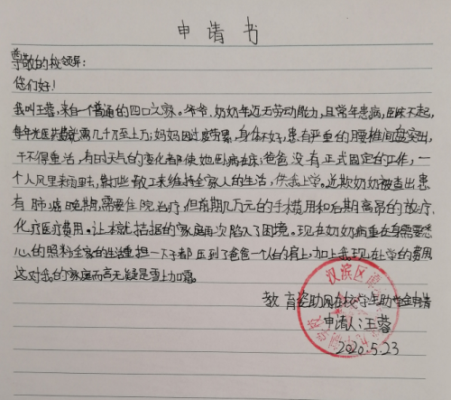 申请书
尊敬的校领导:
您们好!
我叫王蓉,来自一个普通的四口之家。爷爷、奶奶年迈无劳动能力,且常年患病,医味不起,
每年光医药费就需几千万至上万;妈妈因过度劳累,身体不好,患有严重的腰椎间盘突出,
干不得重活,有时天气的变化都使她卧病在床;爸爸没有正式固定的工作,一
个人风里来雨里去,靠打些散工来维持全家人的生活,供我上学。近期奶奶被查出患
有肺癌晚期,需要住院治疗,但前期几万元的手术费用和后期高昂的放疗、
化疗医疗费用。让本就拮据的家庭再次陷入了困境。现在奶奶病重在有需要
心的照料全家的生活重担一下子都压到了爸爸一个人的肩上,加上我现在上学的费用
这对我的家庭而言无疑是雪上加霜。
教育资助局在校学生助学金申请
申请人:王蓉
2020.5.23
汉滨区